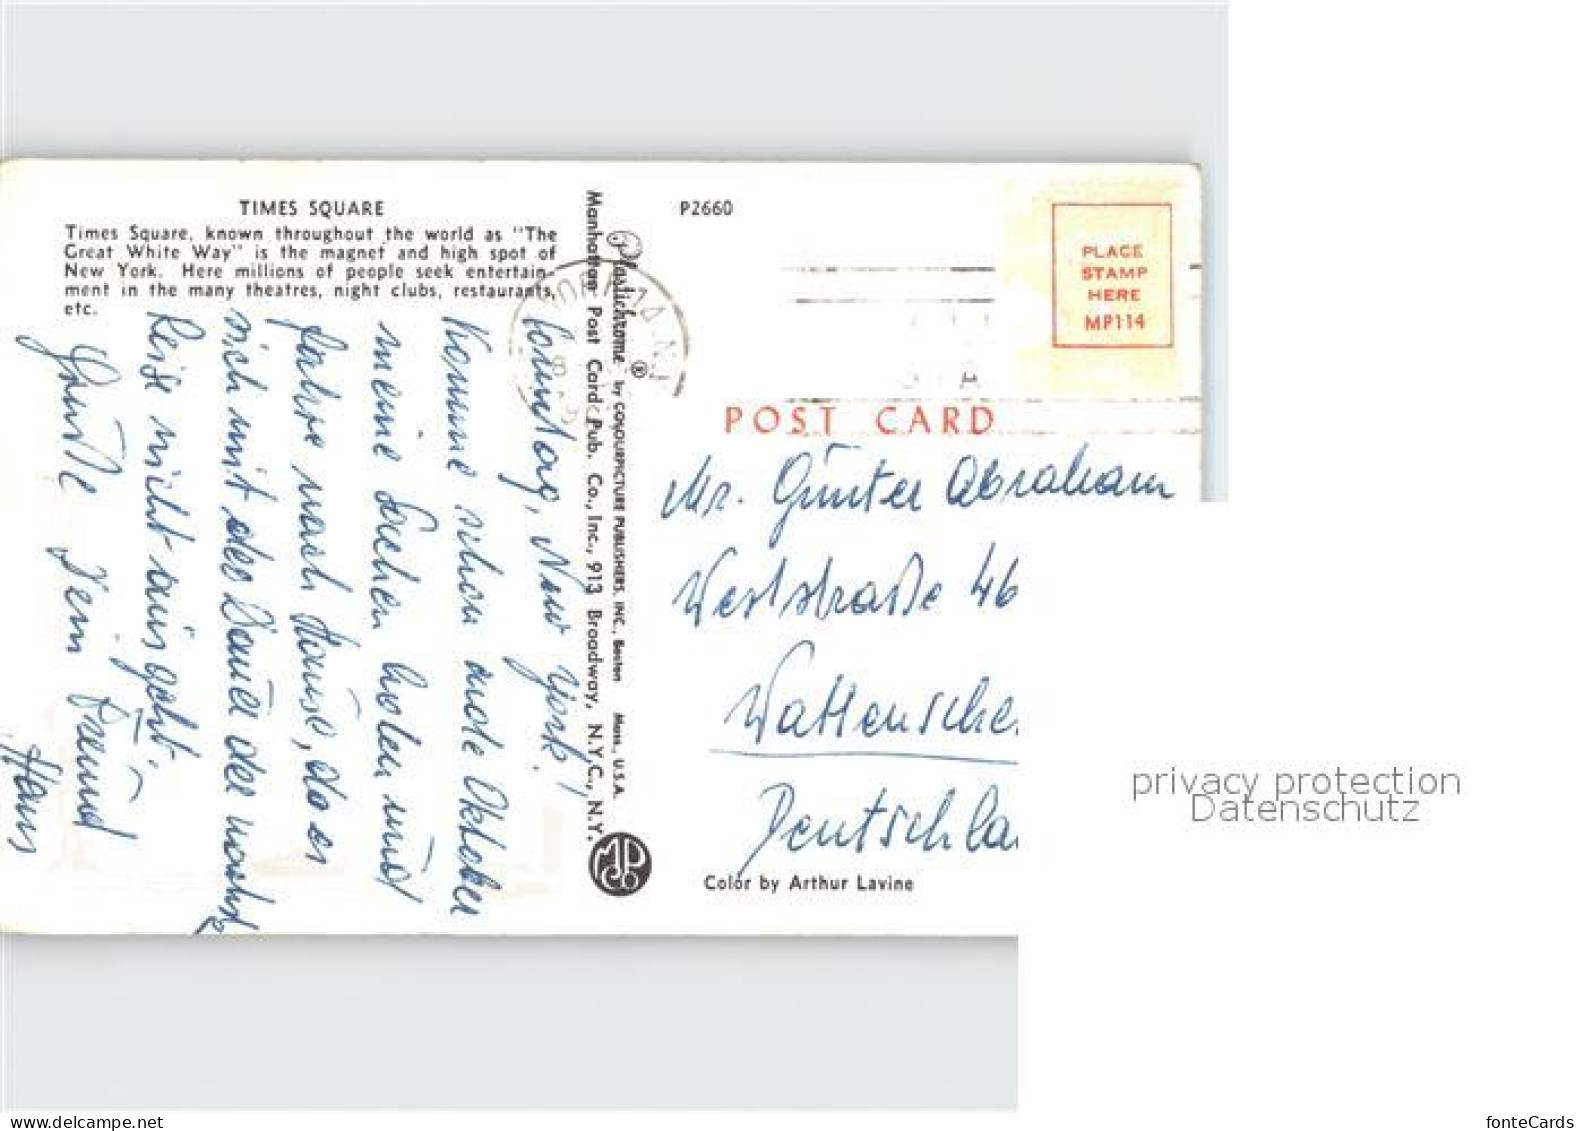 TIMES SQUARE
Times Square, known throughout the world as "The
Great White Way" is the magnet and high spot of
New York. Here millions of people seek entertain-
ment in the many theatres, night clubs, restaurants,
etc.
Sonntag, New York!
Komme schon ende Oktober
meine Sachen holen und
fahre nach Hause, da es
sich mit der Dauer der
Reise nicht ausgeht.
Grüße Dein Freund
Hans
Plastichrome ® by COLOURPICTURE PUBLISHERS, INC., Boston Mass., U.S.A.
Manhattan Post Card Pub. Co., Inc., 913 Broadway, N.Y.C., N.Y.
P2660
PLACE
STAMP
HERE
MP114
POST CARD
Mr. Günter Abraham
Weststraße 46
Wattensche
Deutschla
Color by Arthur Lavine
privacy protection
Datenschutz
www.delcampe.net
fonteCards